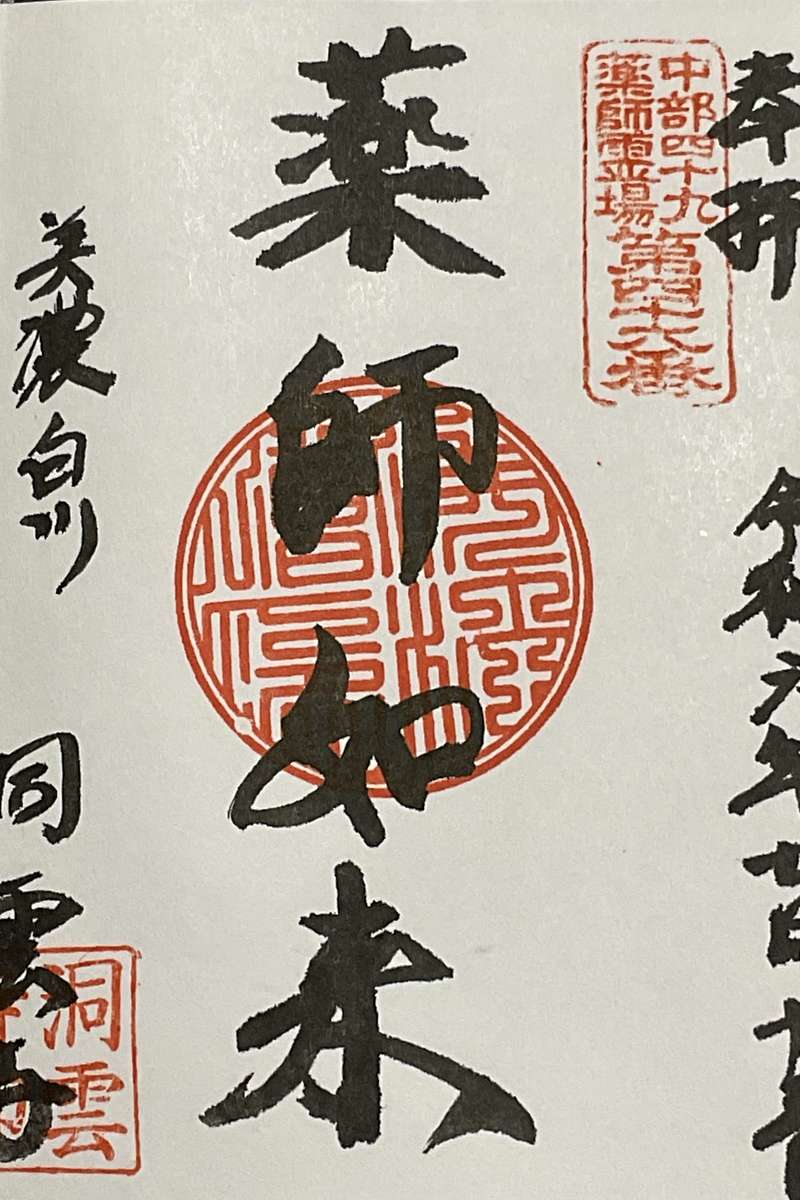 奉拝
令和六年
中部四十九
薬師霊場
第四十六番
薬師如来
美濃白川
洞雲寺
洞雲